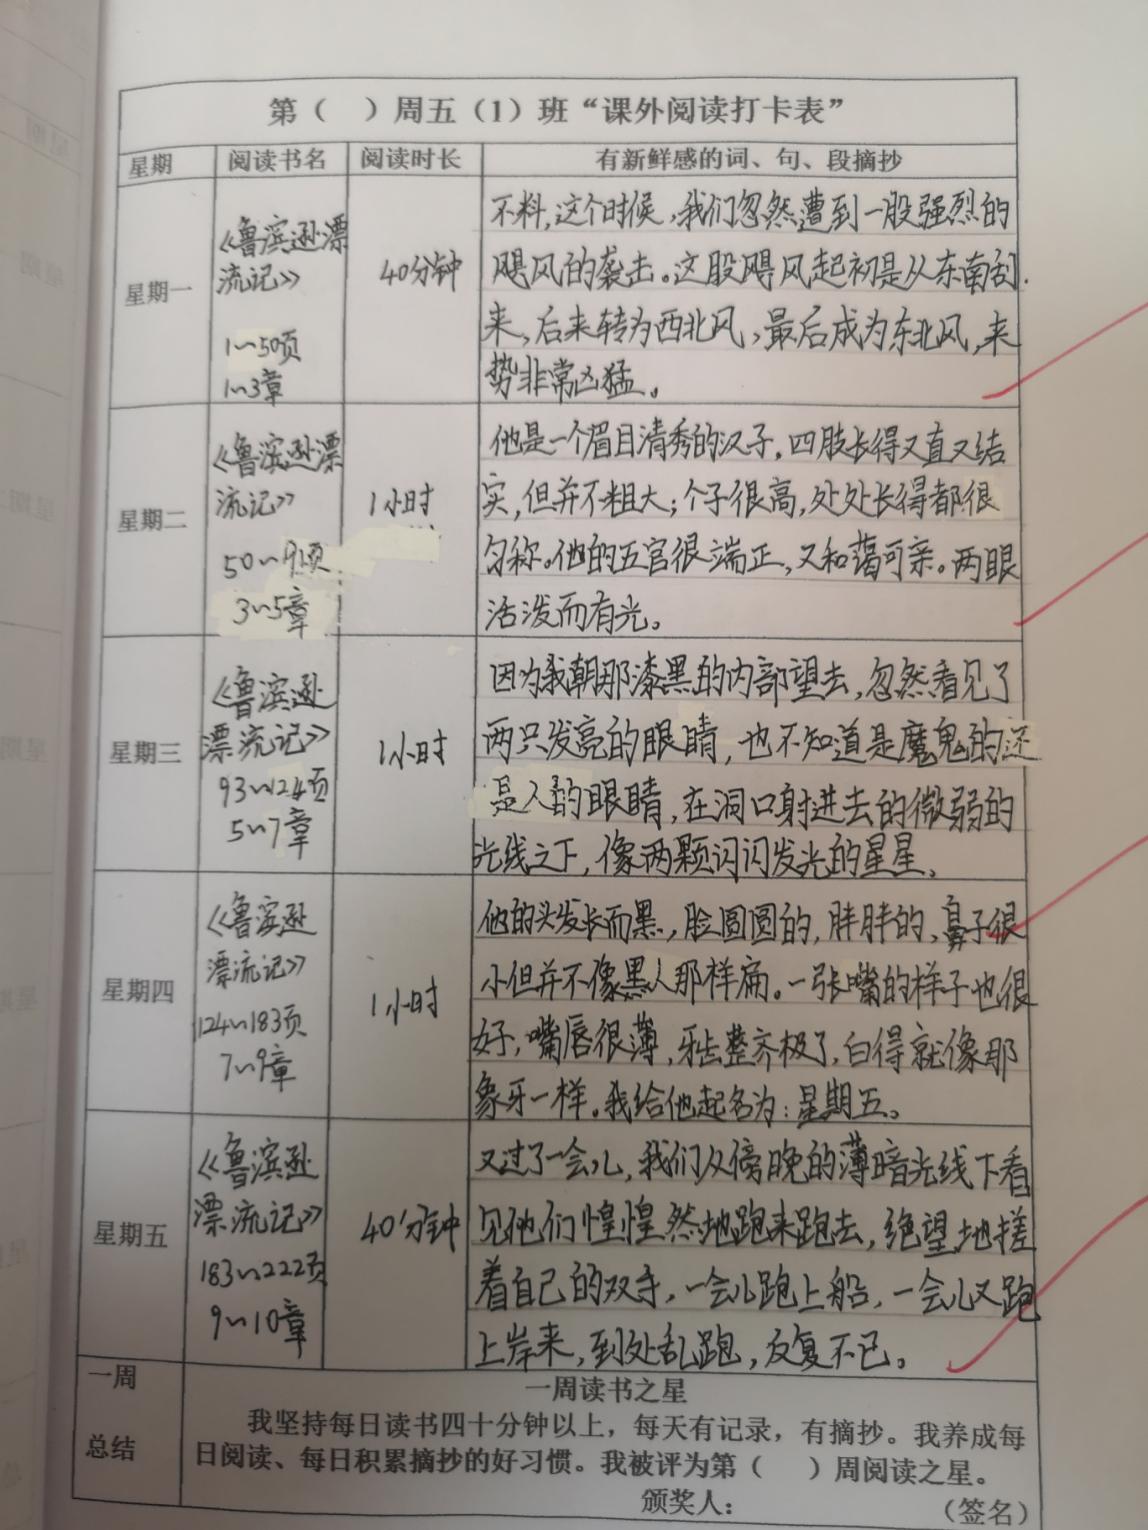 第（ ）周五（1）班“课外阅读打卡表”
星期 阅读书名 阅读时长 有新鲜感的词、句、段摘抄
星期一
《鲁滨逊漂
流记》
1~50页
1~3章
40分钟
不料,这个时候,我们忽然遭到一股强烈的
飓风的袭击。这股飓风起初是从东南刮
来,后来转为西北风,最后成为东北风,来
势非常凶猛。
星期二
《鲁滨逊漂
流记》
50~9页
3~5章
1小时
他是一个眉目清秀的汉子,四肢长得又直又结
实,但并不粗大;个子很高,处处长得都很
匀称。他的五官很端正,又和蔼可亲。两眼
活泼而有光。
星期三
《鲁滨逊
漂流记》
93~124页
5~7章
1小时
因为我朝那漆黑的内部望去,忽然看见了
两只发亮的眼睛,也不知道是魔鬼的还
是人的眼睛,在洞口射进去的微弱的
光线之下,像两颗闪闪发光的星星。
星期四
《鲁滨逊
漂流记》
124~183页
7~9章
1小时
他的头发长而黑,脸圆圆的,胖胖的,鼻子很
小但并不像黑人那样扁。一张嘴的样子也很
好,嘴唇很薄,牙齿整齐极了,白得就像那
象牙一样。我给他起名为:星期五。
星期五
《鲁滨逊
漂流记》
183~222页
9~10章
40分钟
又过了一会儿,我们从傍晚的薄暗光线下看
见他们惶惶然地跑来跑去,绝望地搓
着自己的双手,一会儿跑上船,一会儿又跑
上岸来,到处乱跑,反复不已。
一周
总结
一周读书之星
我坚持每日读书四十分钟以上，每天有记录，有摘抄。我养成每
日阅读、每日积累摘抄的好习惯。我被评为第（ ）周阅读之星。
颁奖人： （签名）